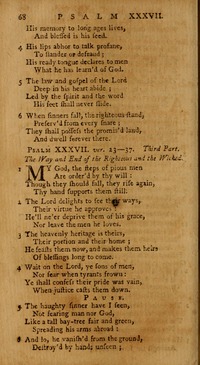 68 PSALM XXXVII.
His memory to long ages lives,
And blessed is his seed.
4 His lips abhor to talk profane,
To slander or defraud;
His ready tongue declares to men
What he has learn'd of God.
5 The law and gospel of the Lord
Deep in his heart abide;
Led by the spirit and the word
His feet shall never slide.
6 When sinners fall, the righteous stand,
Preserv'd from every snare;
They shall possess the promis'd land,
And dwell forever there.
PSALM XXXVII. ver. 23—37. Third Part.
The Way and End of the Righteous and the Wicked.
1 MY God, the steps of pious men
Are order'd by thy will:
Though they should fall, they rise again,
Thy hand supports them still.
2 The Lord delights to see their ways,
Their virtue he approves:
He'll ne'er deprive them of his grace,
Nor leave the men he loves.
3 The heavenly heritage is theirs,
Their portion and their home;
He feeds them now, and makes them heirs
Of blessings long to come.
4 Wait on the Lord, ye sons of men,
Nor fear when tyrants frown:
Ye shall confess their pride was vain,
When justice casts them down.
PAUSE.
5 The haughty sinner have I seen,
Not fearing man nor God,
Like a tall bay-tree fair and green,
Spreading his arms abroad:
6 And lo, he vanish'd from the ground,
Destroy'd by hands unseen;